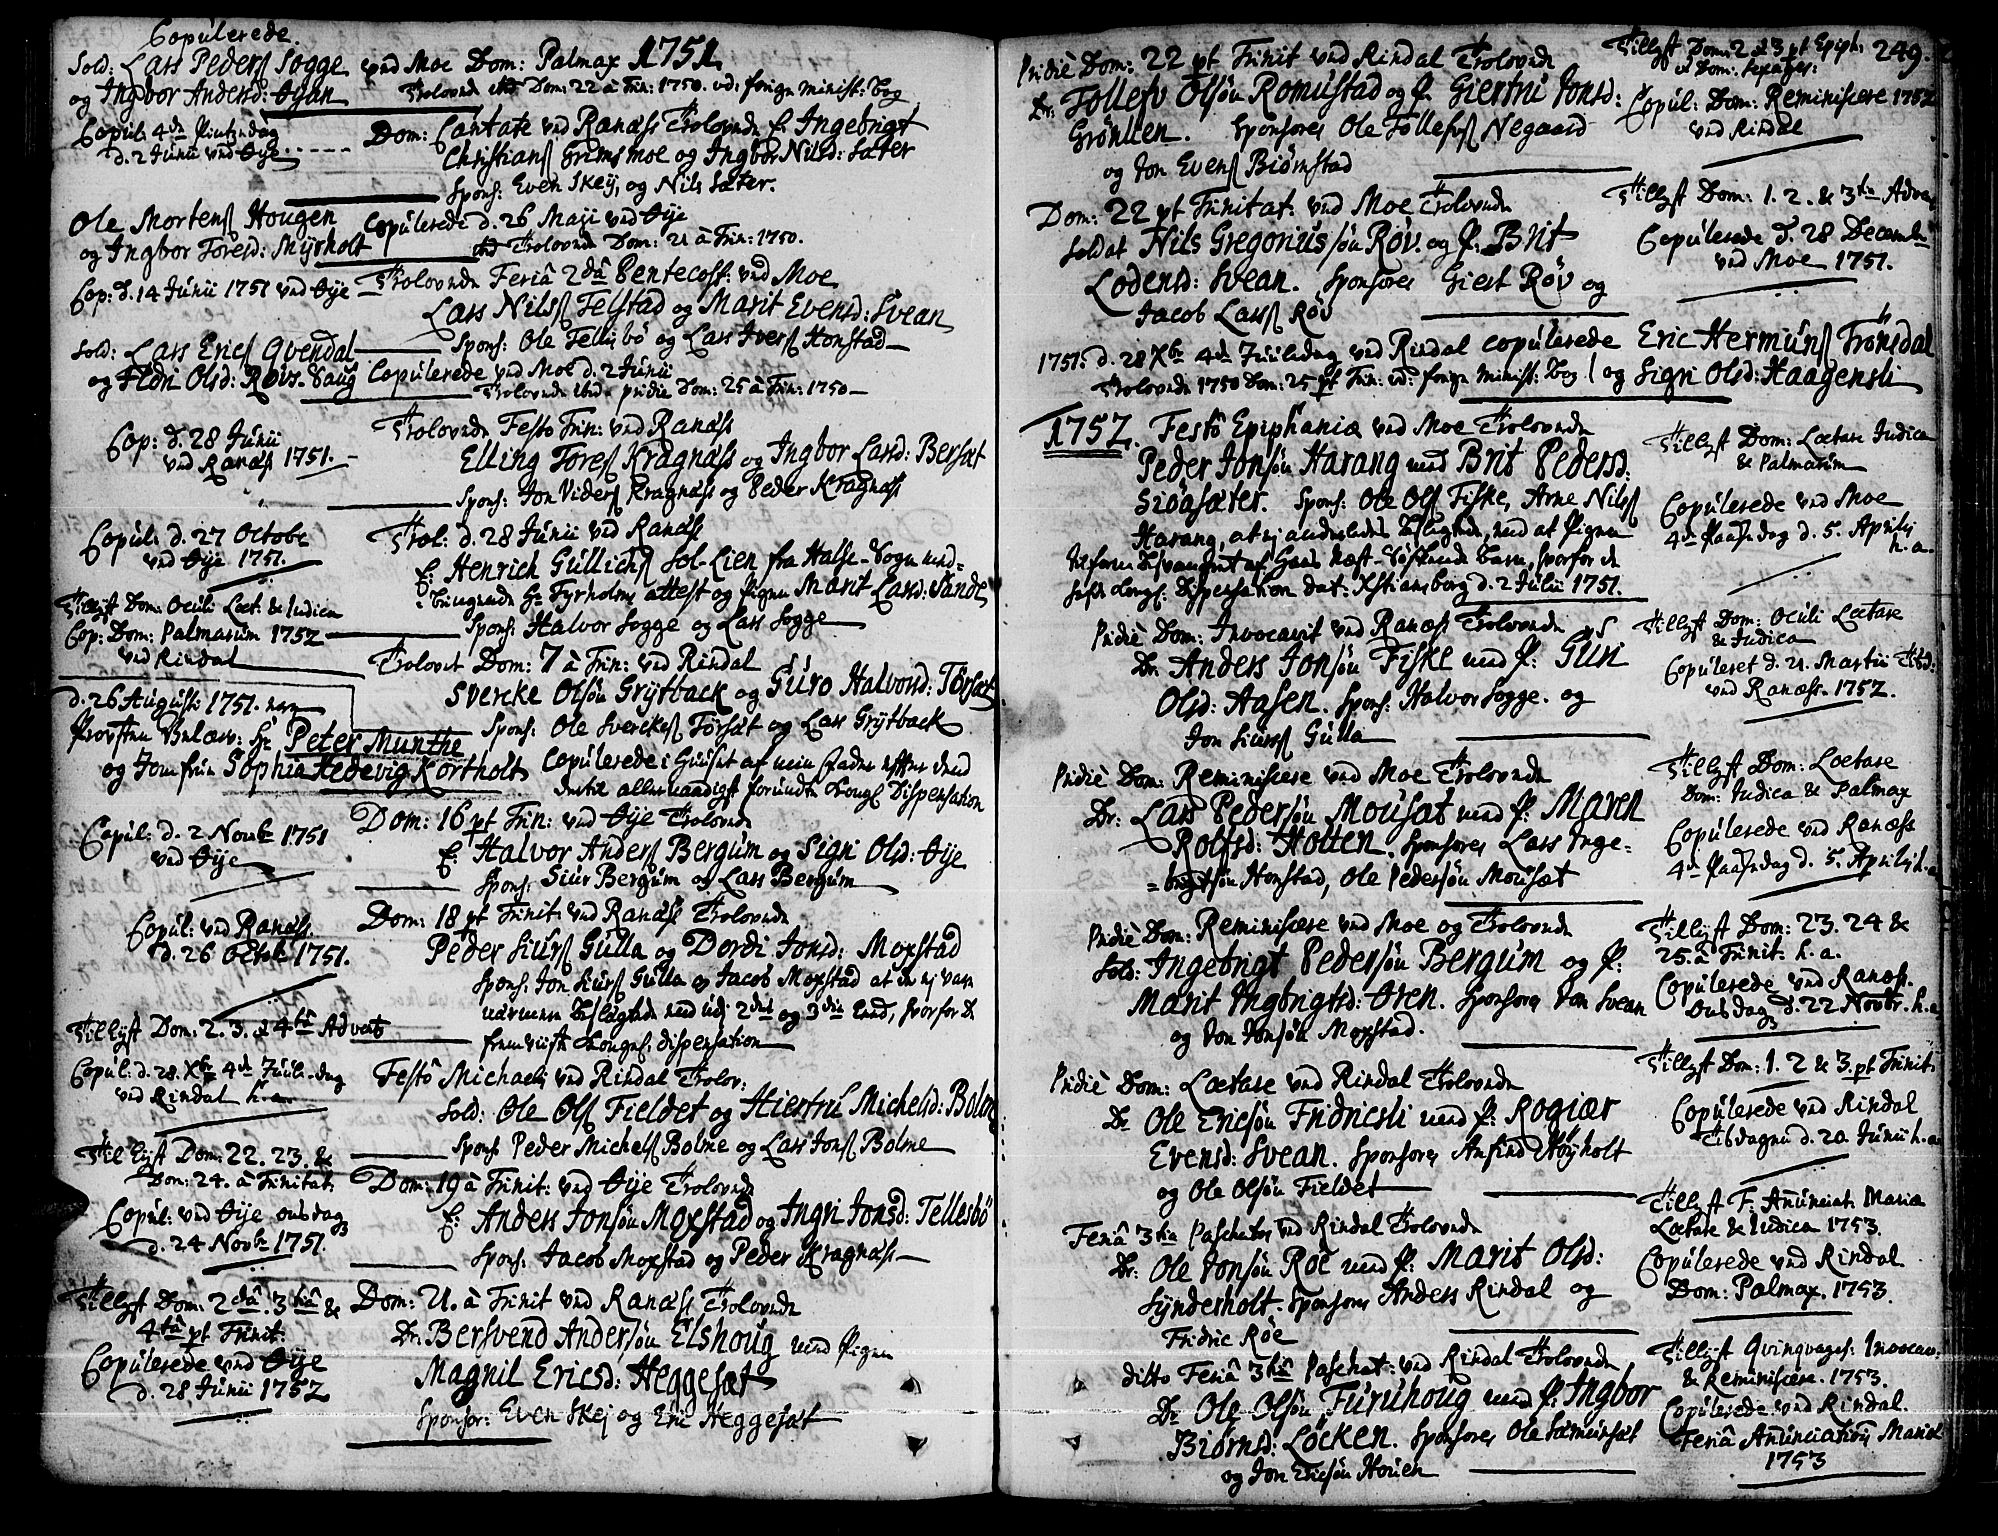 Copulerede.
Sold: Lars Peders Sogge ved Moe Dom: Palmar 1751
og Ingbor Andersd: Øyan Trolovede Dom: 22 à Trin: 1750. vid: forige minist: bog
Copul: 4de Pintzdag
d. 2 Junii ved Øye
Dom: Cantate ved Ranæss Trolovede E: Ingebrigt
Christians Grimsmoe og Ingbor Nilsd: Sæter
Spons: Even Skey, og Nils Sæter.
Ole Mortens Hougen
og Ingbor Toresd: Myrholt
Copulerede d. 26 Maji ved Øye
Trolovede Dom: 21 à Trin: 1750.
Cop: d. 14 Junii 1751 ved Øye
Trolovede Feriâ 2dâ Pentecost: ved Moe
Lars Nilss Telstad og Marit Evensd: Svean
Spons: Ole Tellesbö og Lars Ivers Honstad
Sold: Lars Erics Qvendal
og Eldri Olsd: Røvs-Haug
Copulerede ved Moe d. 2 Junii
Trolovede pridie Dom: 25 à Trin: 1750
Cop: d. 28 Junii
ved Ranæss 1751.
Trolovede Festo Trin: ved Ranæss
Elling Tores Kragnæss og Ingbor Larsd: Bersæt
Spons: Jon Viders Kragnæss og Peder Kragnæss
Copul: d. 27 Octobr
ved Øye 1751.
Trol: d. 28 Junii ved Ranæss
E: Henrich Gullichs Sol-Lien fra Halse-Sogn med
Tyrholms attest og Pigen Marit Larsd: Sande
Spons: Halvor Sogge og Lars Sogge
Tillyst Dom: Oculi Læt: & Iudica
Cop: Dom: Palmarum 1752
ved Rindal
Trolovet Dom: 7 à Trin: ved Rindal
Svercke Olsøn Grytback og Guro Halvorsd: Torsæt
Spons: Ole Sverckes Torsæt og Lars Grytback
d. 26 August: 1751. nem
Provsten Hr Peter Munthe
og Jomfrue Sophia Hedevig Kortholt Copulerede i Huuset af min Fader efter dend
dertil allernaadigst forundte Kongl Dispensation
Copul: d. 2 Novbr 1751
ved Øye
Dom: 16 pt Trin: ved Øye Trolovede
E: Halvor Anders Bergum og Sigri Olsd: Øye
Spons: Siur Bergum og Lars Bergum
Copul: ved Ranæss
d. 26 Octobr 1751.
Dom: 18 pt Trinit: ved Ranæss Trolovede
Peder Siurs Gulla og Dordi Jonsd: Moxstad
Spons: Jon Siurs Gulla og Jacob Moxstad at de ej vare
nærmere beslægtede end udi 2det og 3die Leed, hvorfor de
fremviiste Kongel: dispensation
Tillyst Dom: 2. 3. & 4tâ Advent
Copul: d. 28. Xbr 4de Juule-dag
ved Rindal h.a.
Festô Michaeli ved Rindal Trolov:
Sold: Ole Ols Fieldet og Hiertru Michelsd: Bolme
Spons: Peder Michels Bolme og Lars Jons Bolme
Tillyst Dom: 22. 23. &
Dom: 24. à Trinitat:
Copul: ved Øye onsdag
d. 24 Novbr 1751.
Dom: 19 à Trinit: ved Øye Trolovede
E: Anders Jonsøn Moxstad og Ingri Jonsd: Tellesbö
Spons: Jacob Moxstad og Peder Kragnæss
Tillyst Dom: 2dâ. 3tiâ &
4tâ pt Trinit:
Copulerede ved Øye
d. 28 Junii 1752
Dom: 21. à Trinit ved Ranæss Trolovede
Dr: Bersvend Andersøn Elshoug med Pigen
Magnil Ericsd: Heggesæt
Sponsor: Even Skej og Eric Heggesæt
249.
Pridiè Dom: 22 pt Trinit ved Rindal Trolovede
Dr: Tollefv Olsøn Romustad og P: Giertru Jonsd:
Grönlien. Sponsores Ole Tollefvs Negaard
og Jon Evens Biörnstad
Tillyst Dom: 2 & 3 pt Epiph:
& Dom: Sexages:
Copul: Dom: Reminiscere 1752
ved Rindal
Dom: 22 pt Trinitat: ved Moe Trolovede
Soldat Nils Gregoriussøn Røv og P: Brit
Lodensd: Svean. Sponsores Giest Røv og
Jacob Larss Røv
Tillyst Dom: 1. 2. & 3tia Adven
Copulerede d. 28 Decembr
ved Moe 1751.
1751. d. 28 Xbr 4de Juulsdag ved Rindal copulerede Eric Hermuns Trönsdal
Trolovede 1750 Dom: 25 pt Trin: vid: forige minist: bog / og Sigri Olsd: Haagensli
1752. Festô Epiphaniæ ved Moe Trolovede
Peder Jonsøn Harang med Brit Pedersd:
Siöasæter. Spons: Ole Ols Fiske, Arne Nilss
Harang, at ej anderledes beslægtede, end at Pigen
tilforn besvangret af hans Næst-Søskende barn, hvorfor de
Kongl: Dispensation dat: Xstiansborg d. 2 Julii 1751.
Tillyst Dom: Lætare Iudica
& Palmarum
Copulerede ved Moe
4de Paaskedag d. 5. Aprilis
h.a.
Pridiè Dom: Invocavit ved Ranæss Trolovede
Dr: Anders Jonsøn Fiske med P: Guri
Olsd: Aasen. Spons: Halvor Sogge. og
Jon Siurs Gulla
Tillyst Dom: Oculi Lætare
& Iudica
Copuleret d. 21. Martii Tisd:
ved Ranæss. 1752.
Pridiè Dom: Reminiscere ved Moe Trolovede
Dr: Lars Pedersøn Mousæt med P: Maren
Rolfsd: Holten. Sponsores Lars Inge=
=brigtsøn Honstad, Ole Pedersøn Mousæt
Tillyst Dom: Lætare
Dom: Iudica & Palmar
Copulerede ved Ranæss
4de Paaskedag d. 5. Aprilis h.a.
Pridiè Dom: Reminiscere ved Moe og Trolovede
Sold: Ingebrigt Pedersøn Bergum og P:
Marit Ingbrigtsd: Øren. Sponsores Jon Svean
og Jon Jonsøn Moxstad.
Tillyst Dom: 23. 24 &
25. à Trinit. h.a.
Copulerede ved Ranæss.
Onsdag d. 22 Novbr. h.a.
Pridiè Dom: Lætare ved Rindal Trolovede
Dr Ole Ericsøn Fridricsli med P: Rogiær
Evensd: Svean. Sponsores Anfind Høyholt
og Ole Olsøn Fieldet
Tillyst Dom: 1. 2 & 3. pt Trinit:
Copulerede ved Rindal
Tisdagen d. 20. Junii h.a.
Feriâ 3tia Paschatos ved Rindal Trolovede
Dr: Ole Jonsøn Røe med P: Marit Olsd:
Synderholt. Sponsores Anders Rindal og
Fridric Røe
Tillyst F: Anunciat: Mariæ
Lætare & Iudica 1753.
Copulerede ved Rindal
Dom: Palmar. 1753.
ditto Feriâ 3tiâ Paschat: ved Rindal Trolovede
Dr Ole Olsøn Furuhoug med P: Ingbor
Biörnsd: Löcken. Sponsores Ole Sæmundsæt
og Jon Ericsøn Houen
Tillyst Qvinqvages: Invocav:
& Reminiscere. 1753.
Copulerede ved Rindal.
Feriâ Anunciation Mariæ
1753